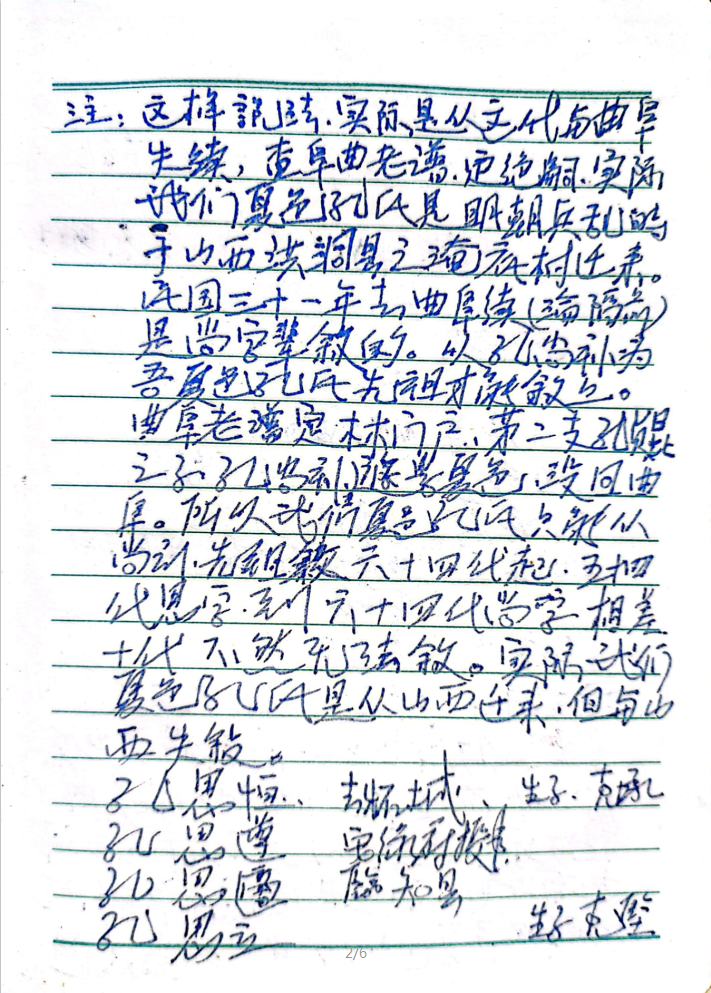 注：这样说法.实际是从文代与曲阜
失续，查阜曲老谱.定绝嗣.实际
我们夏邑孔氏是明朝兵乱时
于山西洪洞县之淹底村迁来。
民国三十一年去曲阜续(沦陷前)
是尚字辈叙的。从孔尚礼为
吾夏邑孔氏先祖才能叙上。
曲阜老谱定林门户.第二支孔贞
之子孔尚礼逃荒夏邑,没回曲
阜。所以我们夏邑孔氏只能从
尚礼先祖叙六十四代起.五十四
代思字.到六十四代尚字相差
十代不然无法叙。实际我们
夏邑孔氏是从山西迁来.但与山
西失叙。
孔思恒. 生子.克承
孔思遵
孔思 知县
孔思立 生子克坚
2/6